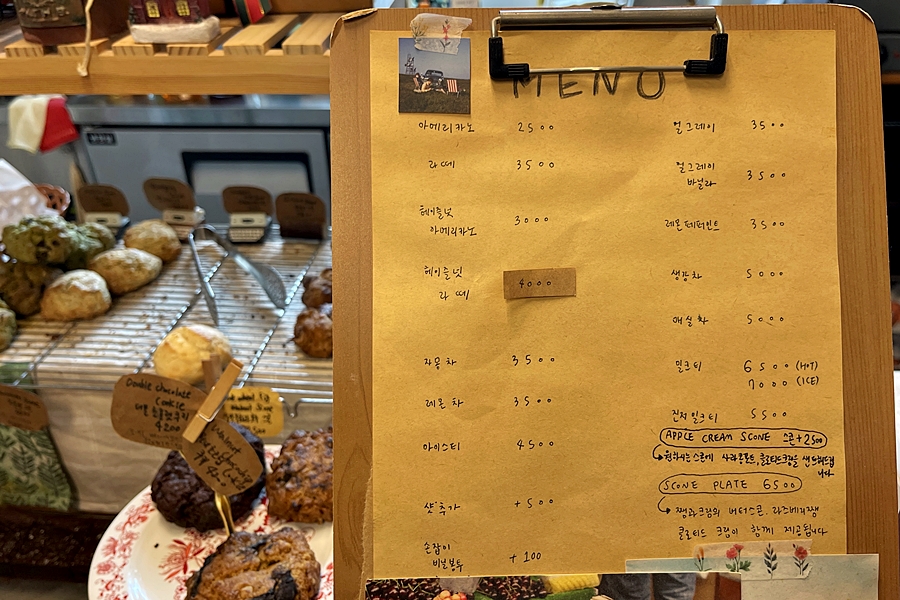 MENU
아메리카노 2500
라떼 3500
헤이즐넛
아메리카노 3000
헤이즐넛
라떼 4000
자몽차 3500
레몬차 3500
아이스티 4500
샷추가 +500
손잡이
비닐봉투 +100
얼그레이 3500
얼그레이
바닐라 3500
레몬페퍼민트 3500
생강차 5000
매실차 5000
밀크티 6500 (HOT)
7000 (ICE)
진저밀크티 5500
APPLE CREAM SCONE 스콘+2500
원하시는 스콘에 사과콩포트, 클로티드크림을 샌드해드립
니다
SCONE PLATE 6500
잼과크림의 버터스콘, 라즈베리잼
클로티드 크림이 함께 제공됩니다
Double chocolate
Cookie
더블 초콜릿쿠키
4200
Walnut